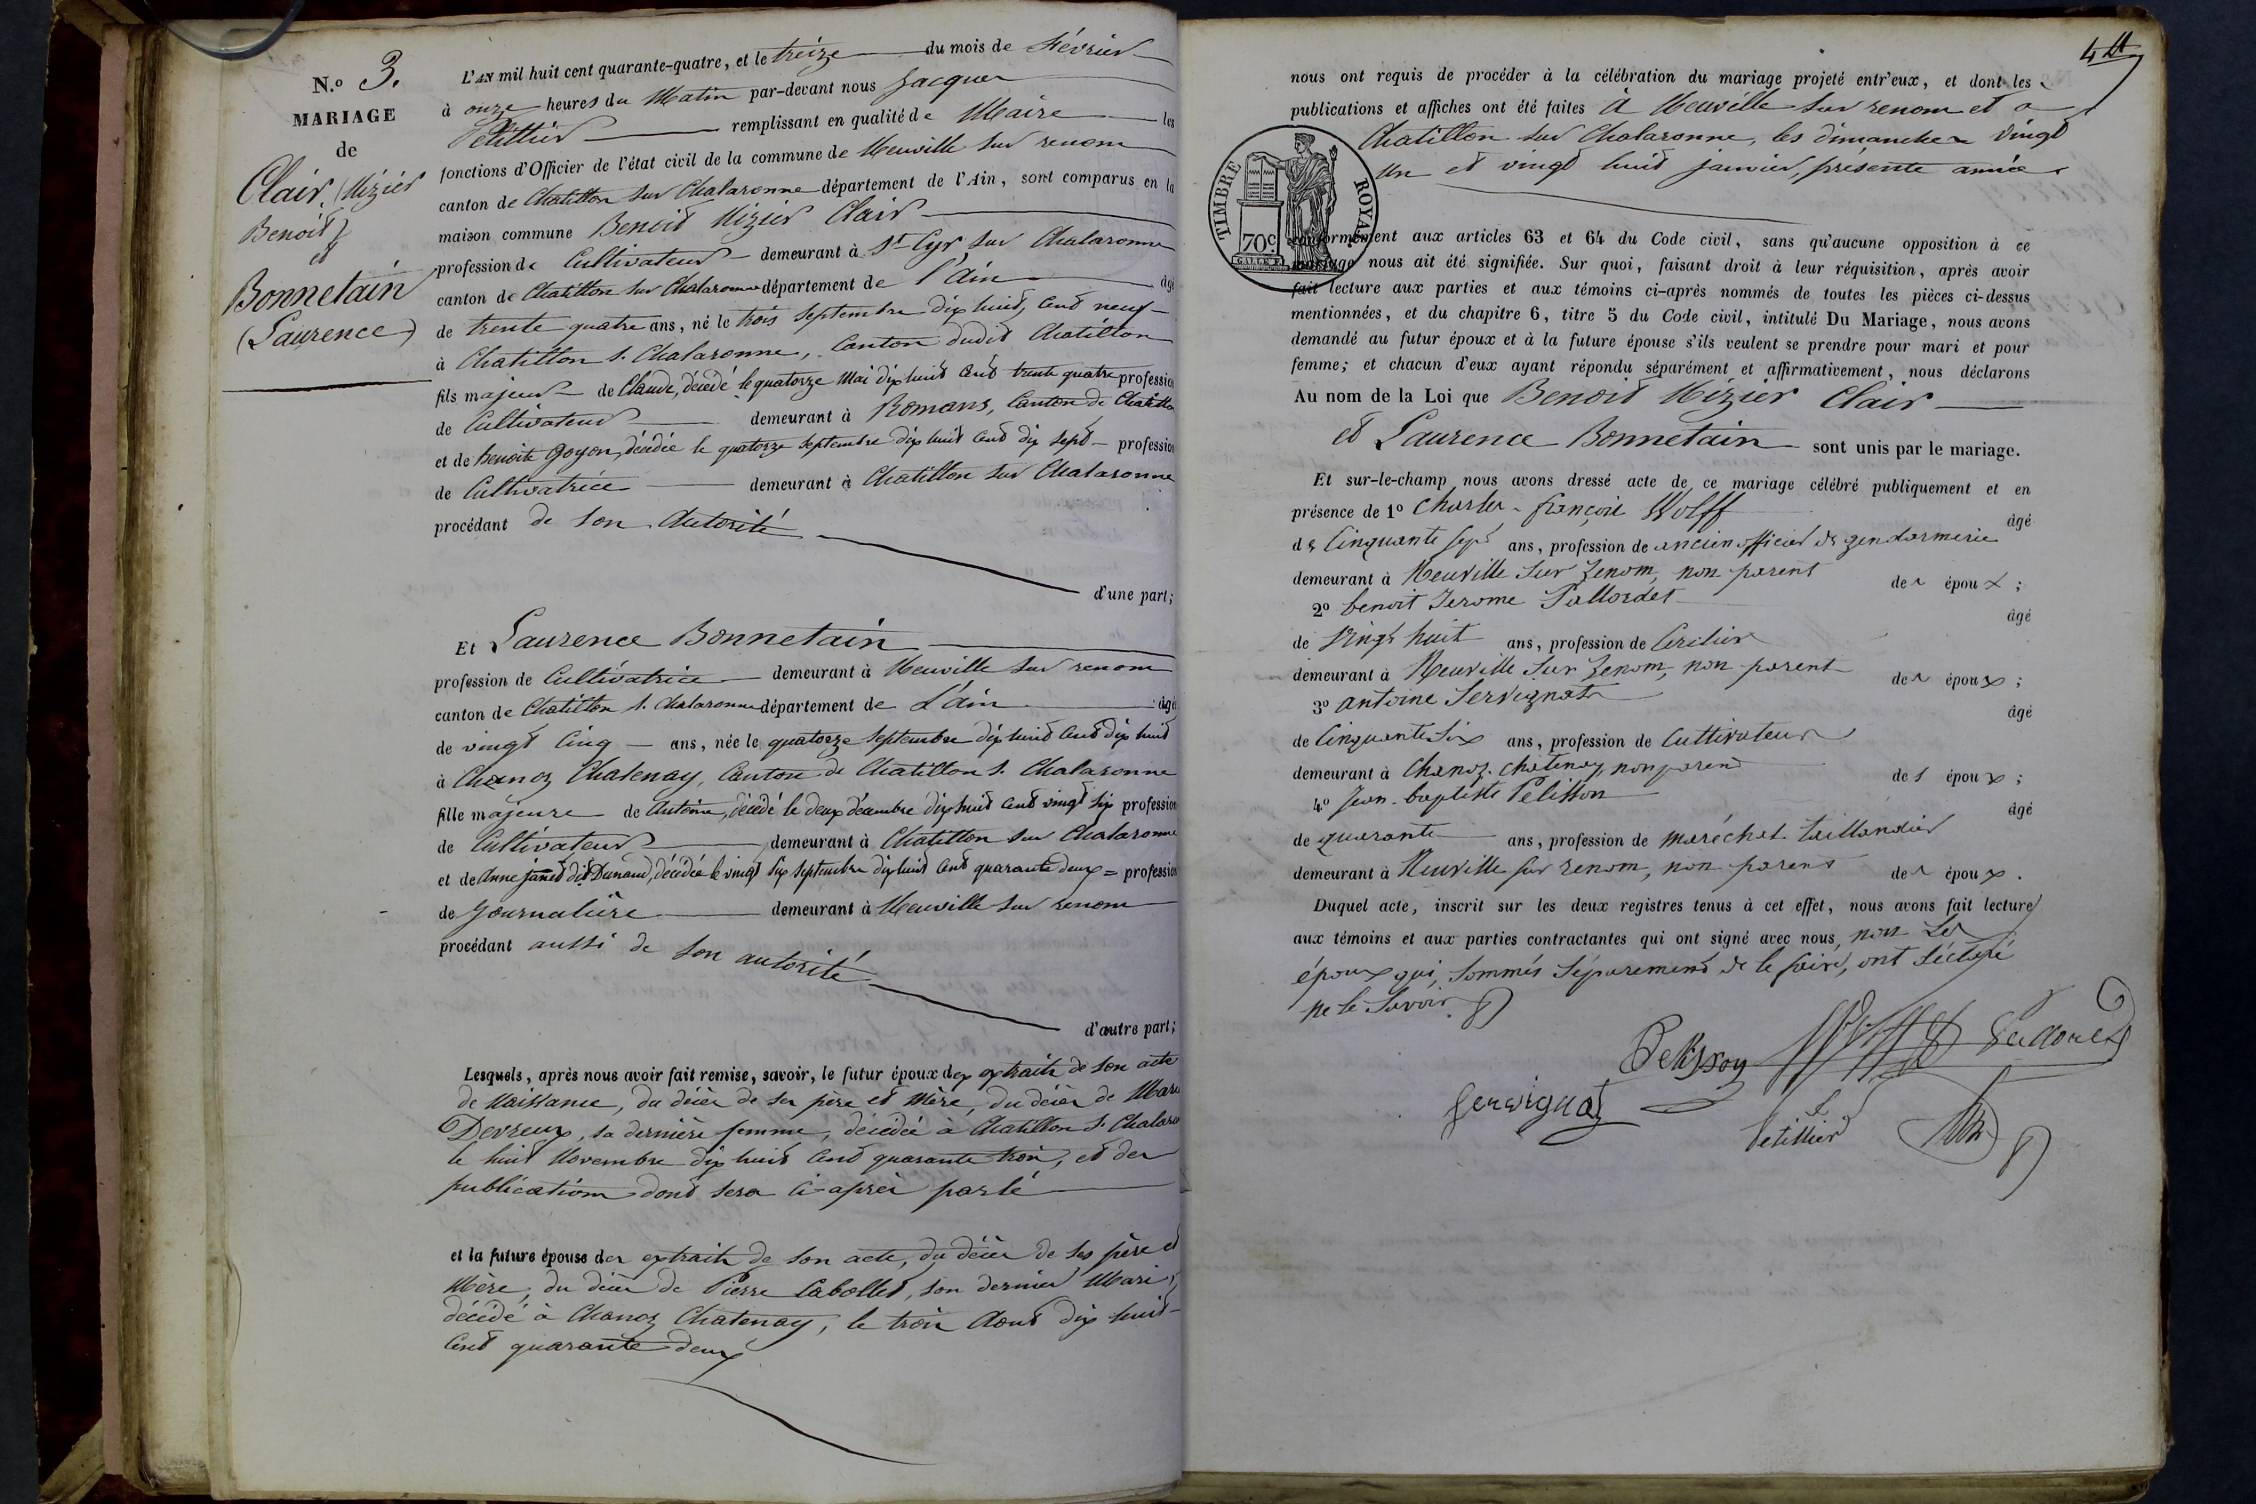 N.º 3.
MARIAGE
de
Clair, (Mizier
Benoit)
et
Bonnetain
(Laurence)
L'AN mil huit cent quarante-quatre, et le treize du mois de Février
à onze heures du Matin par-devant nous Jacques
Petillier remplissant en qualité de Maire les
fonctions d'Officier de l'état civil de la commune de Neuville sur renom
canton de Chatillon sur Chalaronne département de l'Ain, sont comparus en la
maison commune Benoit Mizier Clair
profession de Cultivateur demeurant à St Cyr sur Chalaronne
canton de Chatillon sur Chalaronne département de l'ain âgé
de trente quatre ans, né le trois Septembre dix huit cent neuf
à Chatillon s. Chalaronne, Canton dudit Chatillon
fils majeur de Claude, décédé le quatorze Mai dix huit cent trente quatre profession
de Cultivateur demeurant à Romans, Canton de Chatillon
et de benoite Goyon, décédée le quatorze Septembre dix huit cent dix sept profession
de Cultivatrice demeurant à Chatillon sur Chalaronne
procédant de son Autorité
d'une part;
Et Laurence Bonnetain
profession de Cultivatrice demeurant à Neuville sur renom
canton de Chatillon s. Chalaronne département de L'ain âgé
de vingt cinq ans, née le quatorze Septembre dix huit cent dix huit
à Chanoz Chatenay, Canton de Chatillon s. Chalaronne
fille majeure de Antoine, décédé le deux décembre dix huit cent vingt six profession
de Cultivateur demeurant à Chatillon sur Chalaronne
et de Anne Janet dit Dunand, décédée le vingt six Septembre dix huit cent quarante deux = profession
de Journalière demeurant à Neuville sur renom
procédant aussi de son autorité
d'autre part;
Lesquels, après nous avoir fait remise, savoir, le futur époux des extraits de son acte
de Naissance, du décès de ses père et Mère, du décès de Marie
Devreux, sa dernière femme, décédée à Chatillon s. Chalaronne
le huit Novembre dix huit cent quarante trois, et des
publications dont sera ci-après parlé
et la future épouse des extraits de son acte, du décès de ses père et
Mère, du décès de Pierre Cabollet, son dernier Mari,
décédé à Chanoz Chatenay, le trois Aout dix huit
cent quarante deux
4
nous ont requis de procéder à la célébration du mariage projeté entr'eux, et dont les
publications et affiches ont été faites à Neuville sur renom et a
Chatillon sur Chalaronne, les dimanches vingt
un et vingt huit janvier, présente année
TIMBRE ROYAL
70c.
conformément aux articles 63 et 64 du Code civil, sans qu'aucune opposition à ce
mariage nous ait été signifiée. Sur quoi, faisant droit à leur réquisition, après avoir
fait lecture aux parties et aux témoins ci-après nommés de toutes les pièces ci-dessus
mentionnées, et du chapitre 6, titre 5 du Code civil, intitulé Du Mariage, nous avons
demandé au futur époux et à la future épouse s'ils veulent se prendre pour mari et pour
femme; et chacun d'eux ayant répondu séparément et affirmativement, nous déclarons
Au nom de la Loi que Benoit Mizier Clair
et Laurence Bonnetain sont unis par le mariage.
Et sur-le-champ nous avons dressé acte de ce mariage célébré publiquement et en
présence de 1º Charles-françois Wolff âgé
de Cinquante sept ans, profession de ancien officier de gendarmerie
demeurant à Neuville sur Renom, non parent des époux;
2º benoit Jerome Pallordet âgé
de Vingt huit ans, profession de
demeurant à Neuville sur Renom, non parent des époux;
3º antoine Servignat âgé
de Cinquante six ans, profession de Cultivateur
demeurant à Chanoz-chatenay, non parent des époux;
4º Jean-baptiste Pelisson âgé
de quarante ans, profession de maréchal taillandier
demeurant à Neuville sur renom, non parent des époux.
Duquel acte, inscrit sur les deux registres tenus à cet effet, nous avons fait lecture
aux témoins et aux parties contractantes qui ont signé avec nous, non Les
époux qui, sommés séparement de le faire, ont déclaré
ne le savoir.
Pelisson Wolff
Servignat
Petillier